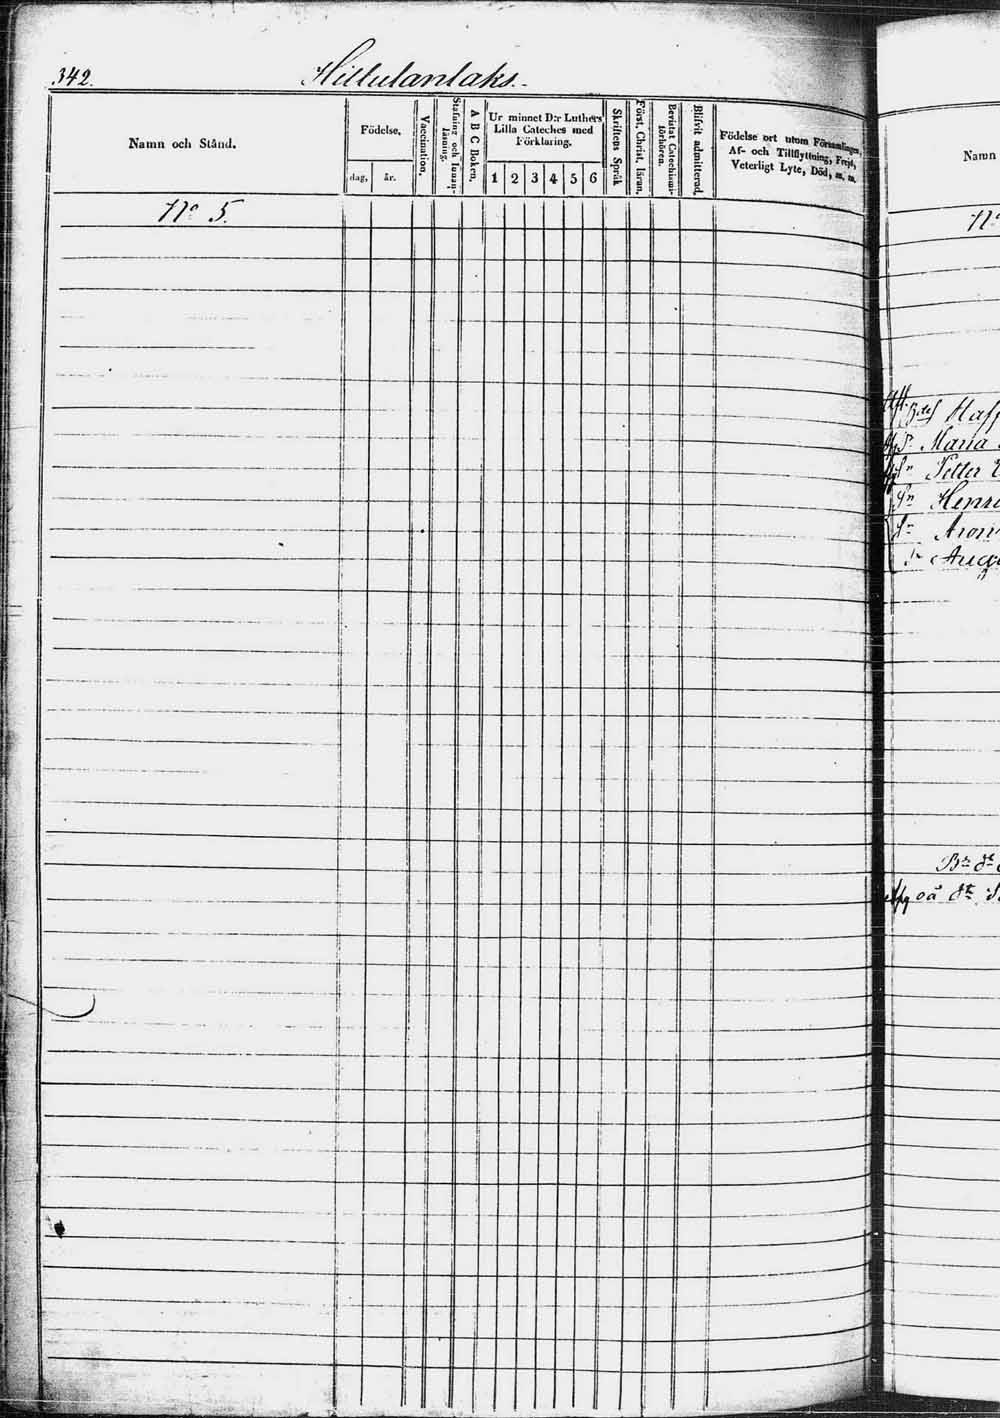 342.
Hillulanlaks.
Namn och Stånd.
Födelse,
dag,
år.
Vaccination.
Stafning och Innan-
läsning.
A B C Boken,
Ur minnet D:r Luthers
Lilla Cateches med
Förklaring.
1 2 3 4 5 6
Skriftens Språk
Först. Christ. läran.
Bevistat Catechismi-
förhören.
Blifvit admitterad,
Födelse ort utom Församlingen,
Af- och Tillflyttning, Frejd,
Veterligt Lyte, Död, m. m.
No 5.
Namn
No
Maria
Petter
Henri
Aron
Aug